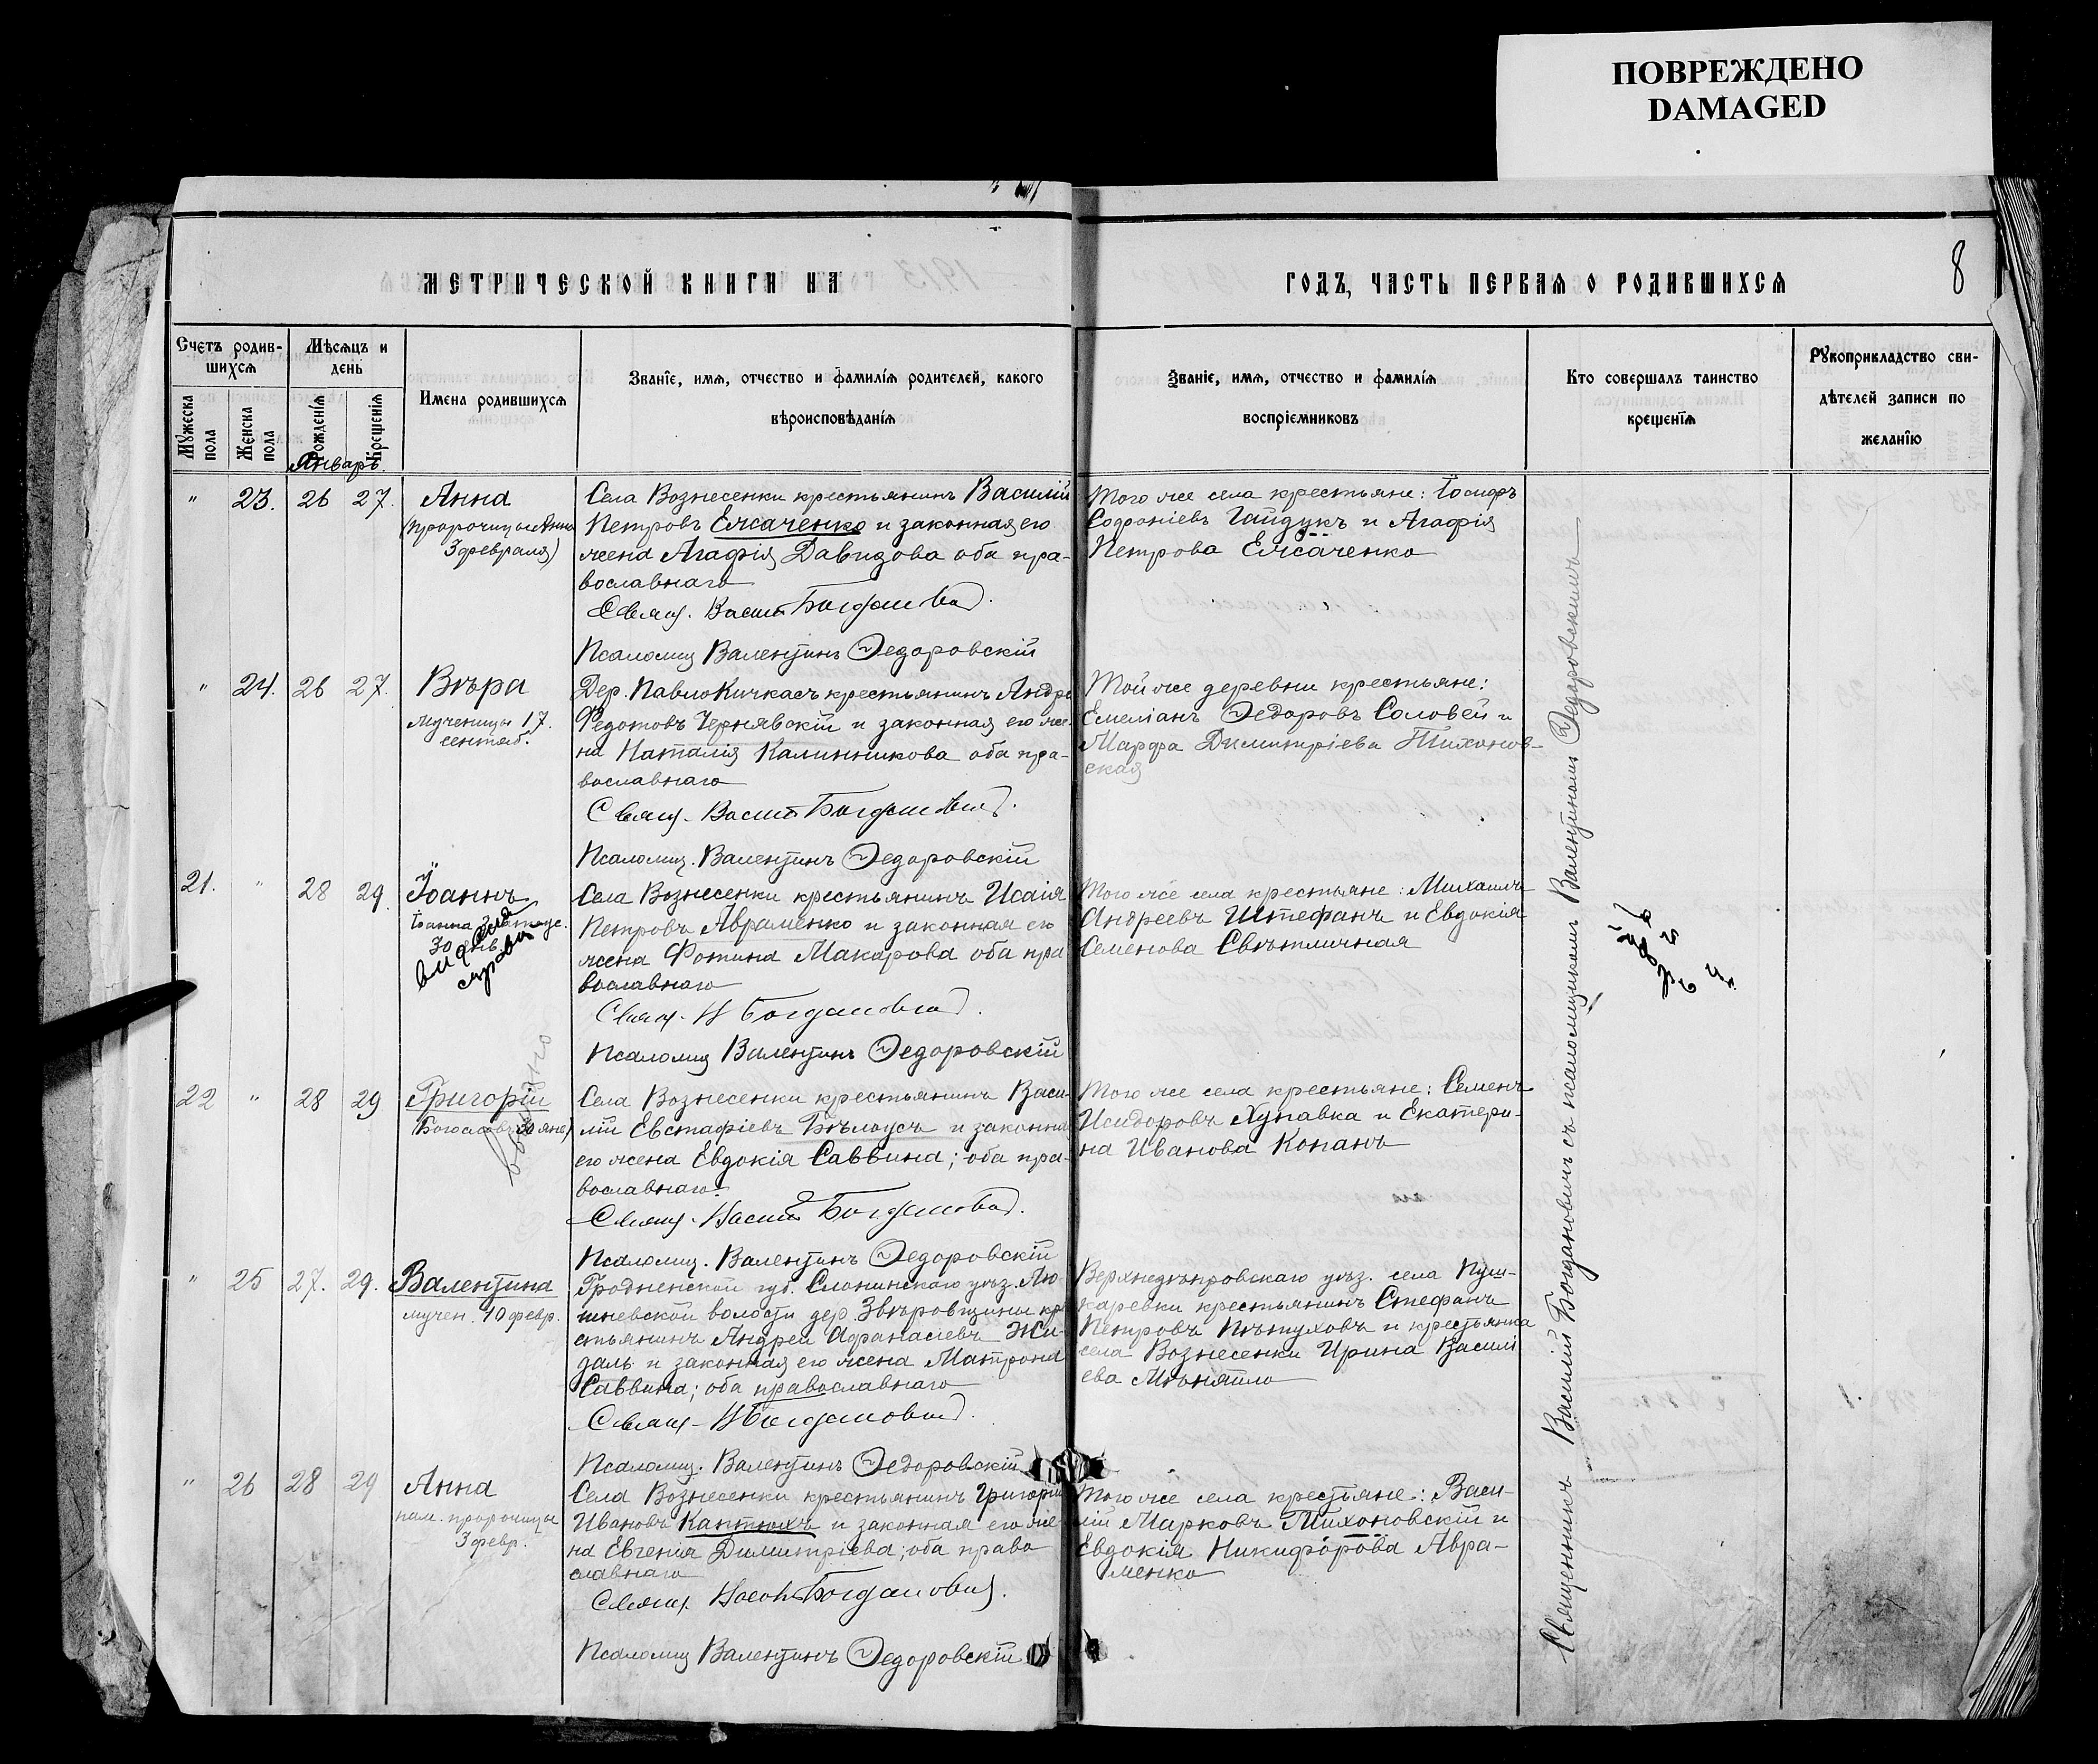 ПОВРЕЖДЕНО
DAMAGED
8
МЕТРИЧЕСКОЙ КНИГИ НА
ГОДЪ, ЧАСТЬ ПЕРВАЯ О РОДИВШИХСЯ
Счетъ родив-
шихся
Мужеска пола
Женска пола
Мѣсяцъ и
день
Рожденія
Крещенія
Имена родившихся
Званіе, имя, отчество и фамилія родителей, какого
вѣроисповѣданія
Званіе, имя, отчество и фамилія
воспріемниковъ
Кто совершалъ таинство
крещенія
Рукоприкладство сви-
дѣтелей записи по
желанію
Январь
" 23. 26 27. Анна
(пророчицы Анны
3 февраля)
Села Вознесенки крестьянинъ Василій
Петровъ Елисаченко и законная его
жена Агафія Давидова оба пра-
вославнаго
Свящ. Васил Богданович.
Псаломщ Валентинъ Федоровскій
Того же села крестьяне: Іосифъ
Софроніевъ Гайдукъ и Агафія
Петрова Елисаченко
" 24. 26 27. Вѣра
Мученицы 17.
сентяб.
Дер. ПавлоКичкасъ крестьянинъ Андре
Федотовъ Чернявскій и законная его же-
на Наталія Калинникова оба пра-
вославнаго
Свящ. Васил Богданович.
Псаломщ. Валентинъ Федоровскій
Той же деревни крестьяне:
Емеліанъ Федоровъ Соловей и
Марфа Димитріева Тихонов-
ская
21. " 28 29. Іоаннъ
Іоанна Златоус.
30 янв.
Села Вознесенки крестьянинъ Исаія
Петровъ Авраменко и законная его
жена Фотина Макарова оба пра
вославнаго
Свящ. В Богданович.
Псаломщ Валентинъ Федоровскій
Того же села крестьяне: Михаилъ
Андреевъ Штефанъ и Евдокія
Семенова Свѣтличная
22 " 28 29 Григорій
(Богослов. 30 янв)
Села Вознесенки крестьянинъ Васи-
лій Евстафіевъ Бѣлоусъ и законна
его жена Евдокія Саввина; оба пра-
вославнаго.
Свящ. Васил Богданович.
Псаломщ. Валентинъ Федоровскій
Того же села крестьяне: Семенъ
Исидоровъ Хупавка и Екатери-
на Иванова Копанъ
" 25 27. 29. Валентина
мучен. 10 февр.
Гродненской губ. Слонимскаго уѣз.
волости дер. Звѣровщины кре
стьянинъ Андрей Афанасіевъ Жи-
даль и законная его жена Матрона
Саввина; оба православнаго
Свящ. В Богданович.
Псаломщ. Валентинъ Федоровскій
Верхнеднѣпровскаго уѣз. села Пуш-
каревки крестьянинъ Стефанъ
Петровъ Пѣтуховъ и крестьянка
села Вознесенки Ирина Васил
ева Мѣняйло
" 26 28 29 Анна
пам. пророчицы
3 февр.
Села Вознесенки крестьянинъ Григорій
Ивановъ Каптюхъ и законная его же-
на Евгенія Димитріева; оба право
славнаго
Свящ. Васил Богданович.
Псаломщ Валентинъ Федоровскій
Того же села крестьяне: Васи-
лій Марковъ Тихоновскій и
Евдокія Никифорова Авра-
менко
Священникъ Василій Богдановичъ съ псаломщикомъ Валентиномъ Федоровскимъ